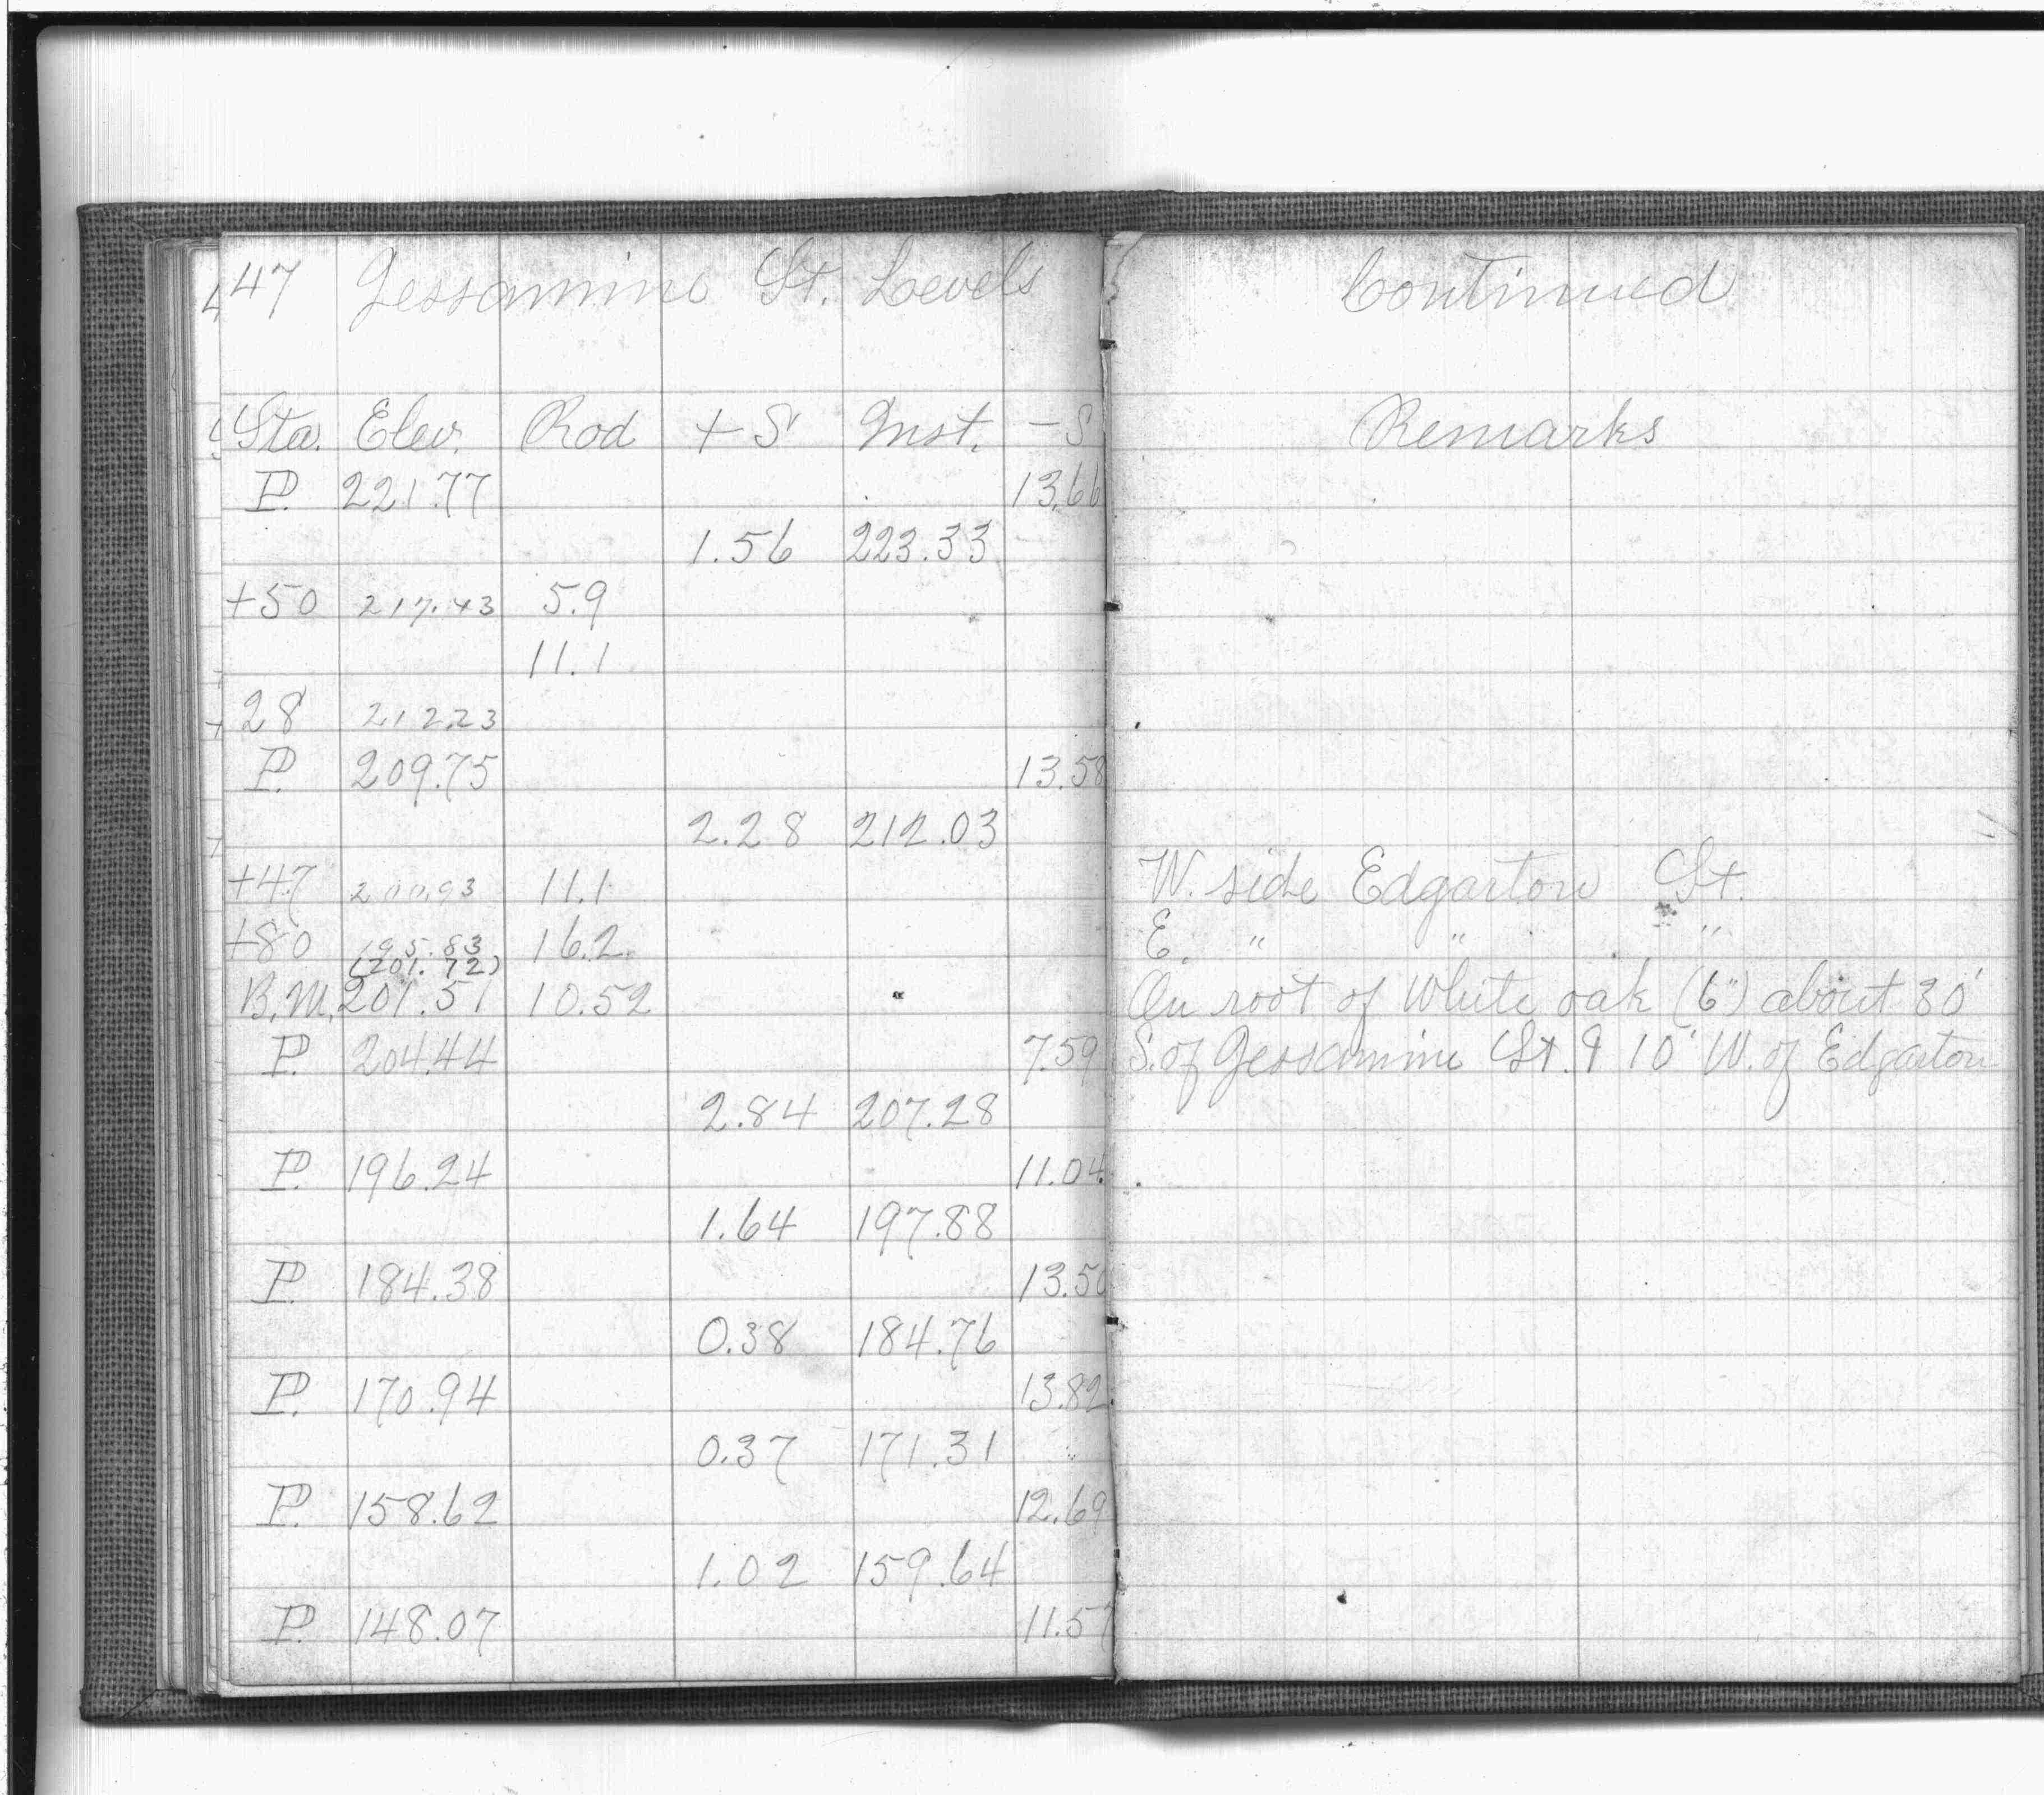 47 Jessamine St. Levels Continued
Sta. Elev. Rod + S Inst. - S Remarks
P. 221.77 13.66
1.56 223.33
+50 217.43 5.9
11.1
28 212.23
P. 209.75 13.58
2.28 212.03
+47 200.93 11.1 W. side Edgarton St.
+80 195.83 16.2 E. " " "
(201.72)
B.M. 201.51 10.52 On root of White oak (6") about 30'
P. 204.44 7.59 S. of Jessamine St. & 10' W. of Edgarton
2.84 207.28
P. 196.24 11.04
1.64 197.88
P. 184.38 13.50
0.38 184.76
P. 170.94 13.82
0.37 171.31
P. 158.62 12.69
1.02 159.64
P. 148.07 11.57